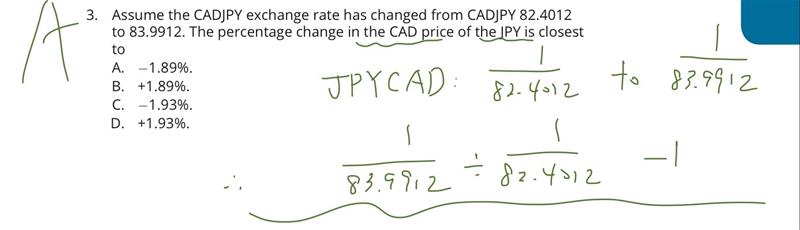 A
3. Assume the CADJPY exchange rate has changed from CADJPY 82.4012
to 83.9912. The percentage change in the CAD price of the JPY is closest
to
A. −1.89%.
B. +1.89%.
C. −1.93%.
D. +1.93%.
JPYCAD: 1/82.4012 to 1/83.9912
∴ 1/83.9912 ÷ 1/82.4012 −1